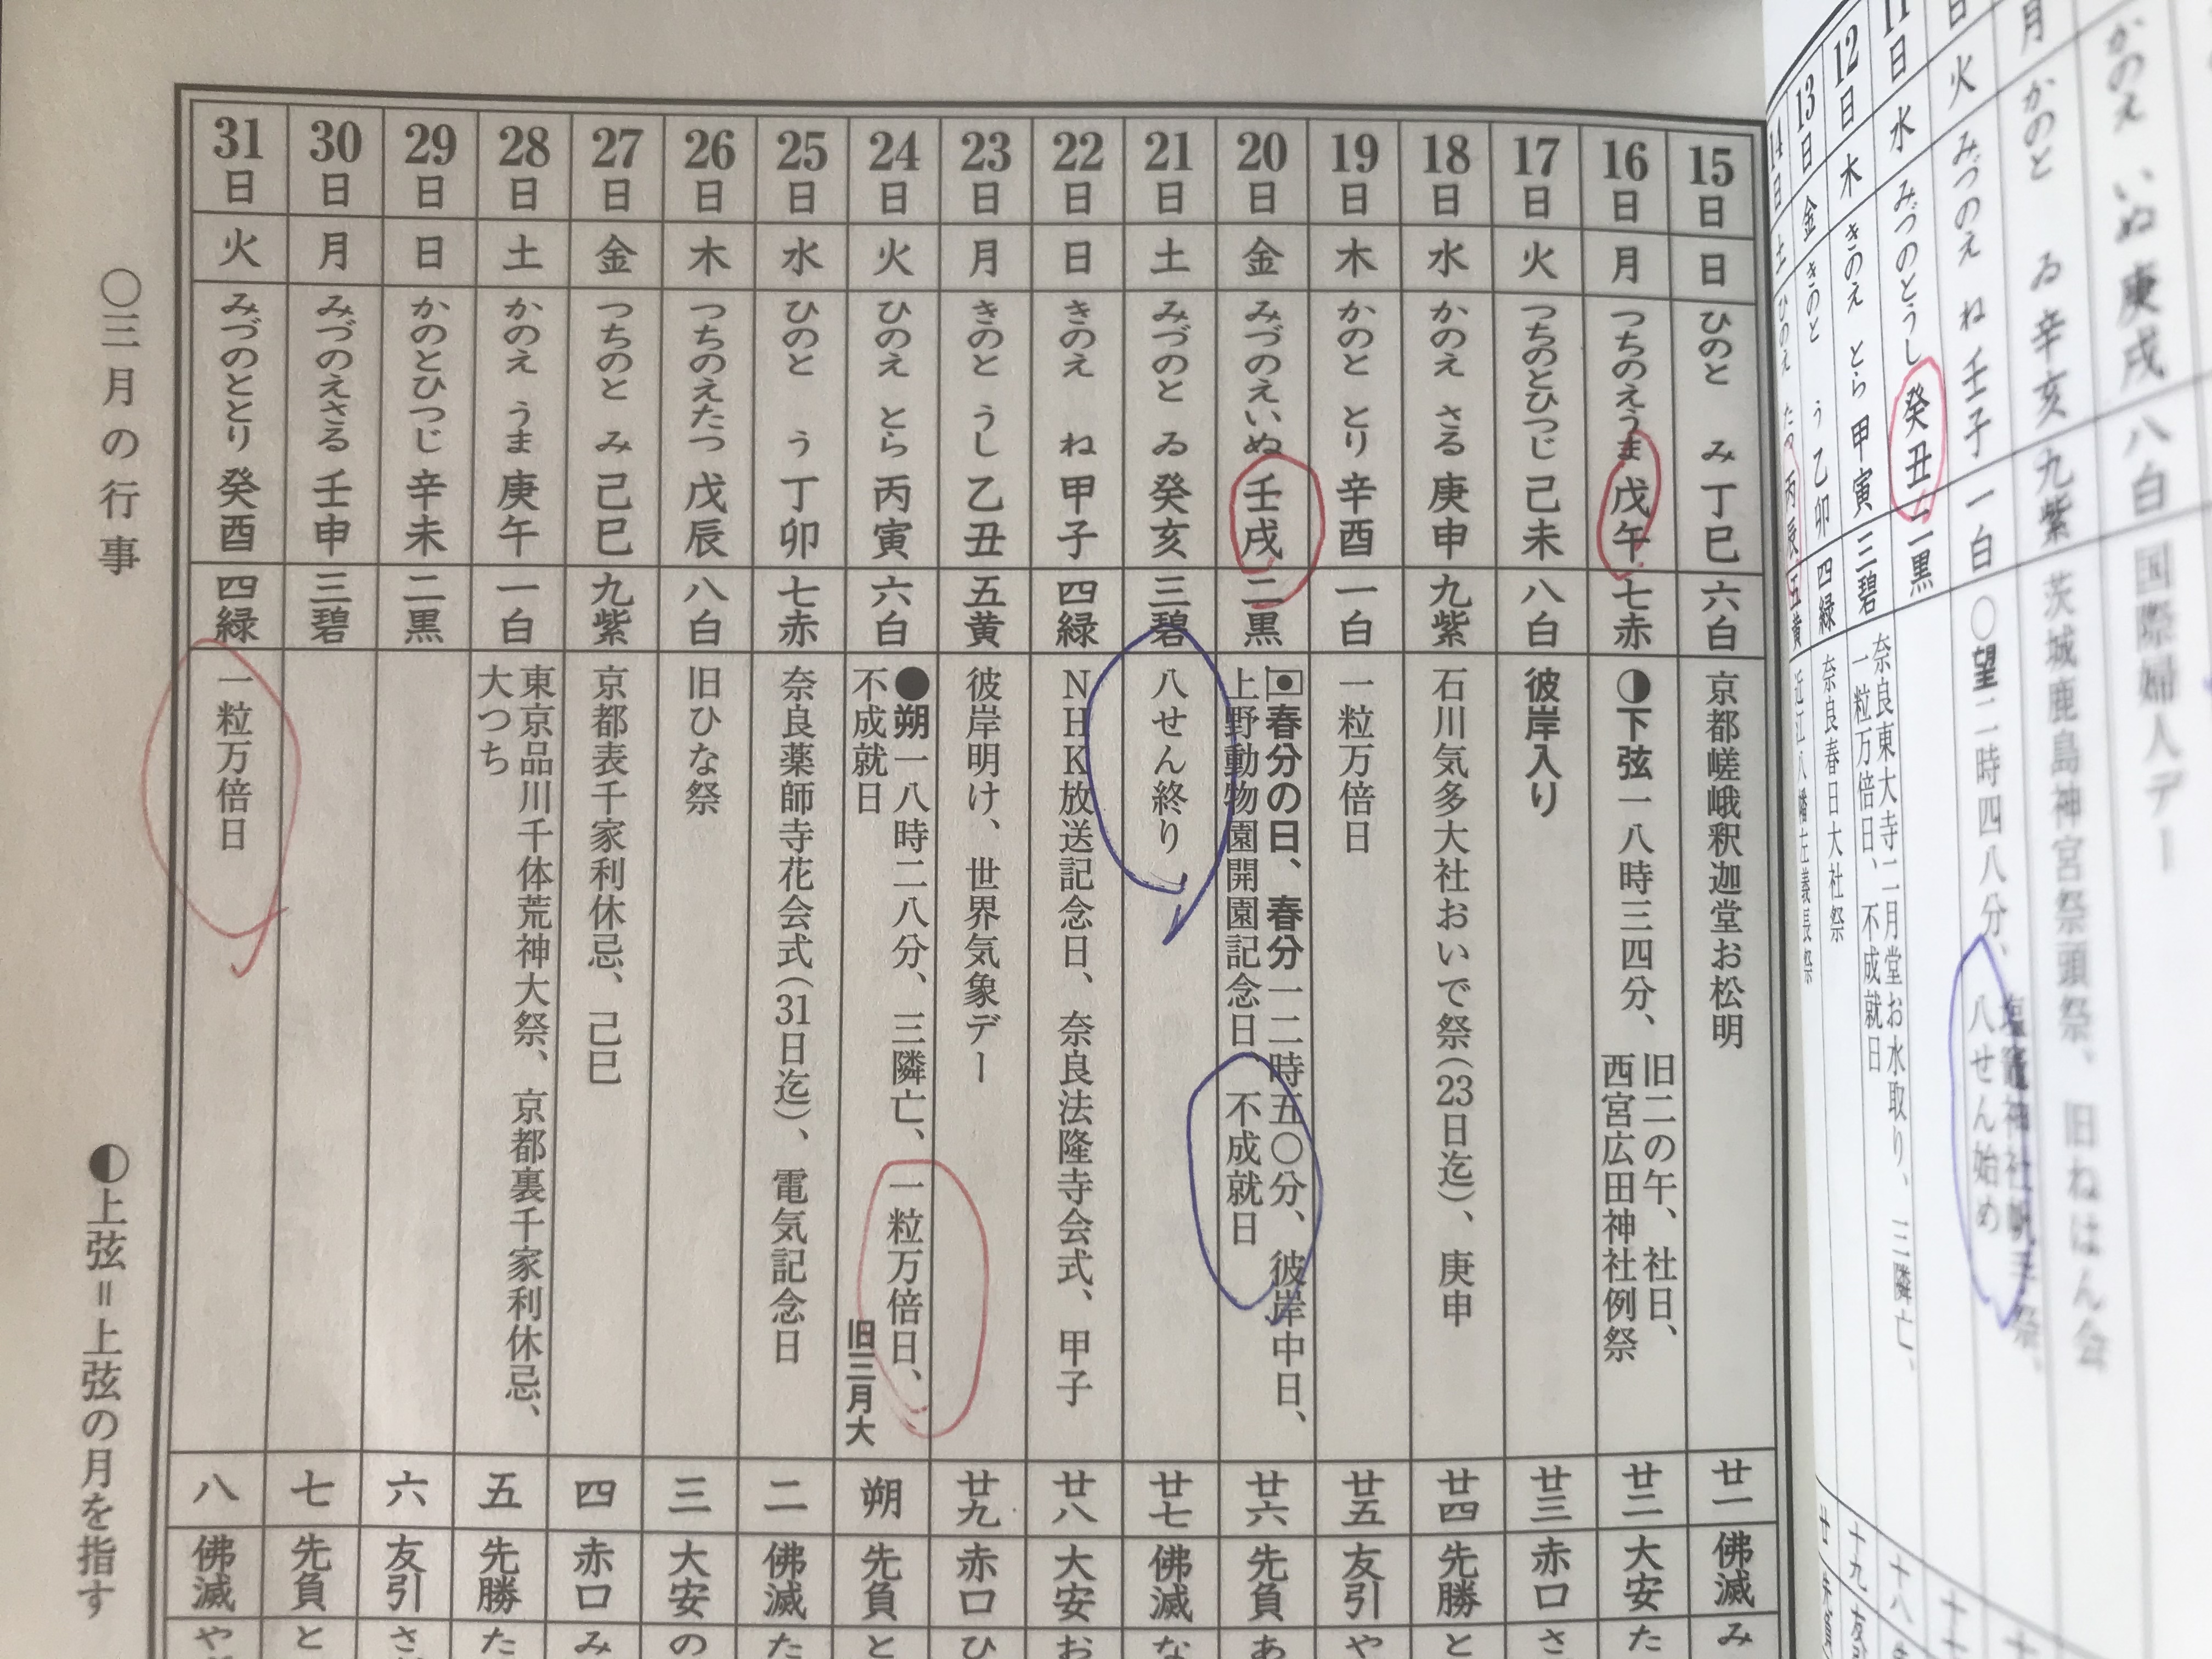 国際婦人デー
かのえ いぬ 庚戌
八白
月
かのと ゐ 辛亥
九紫
茨城鹿島神宮祭頭祭、旧ねはん会
日
火
みづのえ ね 壬子
一白
〇望二時四八分、
塩竈神社帆手祭、
八せん始め
11日
水
みづのとうし 癸丑
二黒
奈良東大寺二月堂お水取り、三隣亡、
一粒万倍日、不成就日
十八
12日
木
きのえ とら 甲寅
三碧
奈良春日大社祭
十九
友
13日
金
きのと う 乙卯
四緑
14日
土
ひのえ たつ 丙辰
五黄
15日
日
ひのと み 丁巳
六白
京都嵯峨釈迦堂お松明
廿一
佛滅
み
16日
月
つちのえうま 戊午
七赤
◑下弦一八時三四分、
旧二の午、社日、
西宮広田神社例祭
廿二
大安
た
17日
火
つちのとひつじ 己未
八白
彼岸入り
廿三
赤口
さ
18日
水
かのえ さる 庚申
九紫
石川気多大社おいで祭(23日迄)、庚申
廿四
先勝
と
19日
木
かのと とり 辛酉
一白
一粒万倍日
廿五
友引
や
20日
金
みづのえいぬ 壬戌
二黒
春分の日、春分一二時五〇分、彼岸中日、
上野動物園開園記念日、不成就日
廿六
先負
あ
21日
土
みづのと ゐ 癸亥
三碧
八せん終り
廿七
佛滅
な
22日
日
きのえ ね 甲子
四緑
NHK放送記念日、奈良法隆寺会式、甲子
廿八
大安
お
23日
月
きのと うし 乙丑
五黄
彼岸明け、世界気象デー
廿九
赤口
ひ
24日
火
ひのえ とら 丙寅
六白
●朔一八時二八分、三隣亡、一粒万倍日、
不成就日
旧三月大
朔
先負
と
25日
水
ひのと う 丁卯
七赤
奈良薬師寺花会式(31日迄)、電気記念日
二
佛滅
た
26日
木
つちのえたつ 戊辰
八白
旧ひな祭
三
大安
の
27日
金
つちのと み 己巳
九紫
京都表千家利休忌、己巳
四
赤口
み
28日
土
かのえ うま 庚午
一白
東京品川千体荒神大祭、京都裏千家利休忌、
大つち
五
先勝
た
29日
日
かのとひつじ 辛未
二黒
六
友引
さ
30日
月
みづのえさる 壬申
三碧
七
先負
と
31日
火
みづのととり 癸酉
四緑
一粒万倍日
八
佛滅
や
〇三月の行事
◐上弦=上弦の月を指す